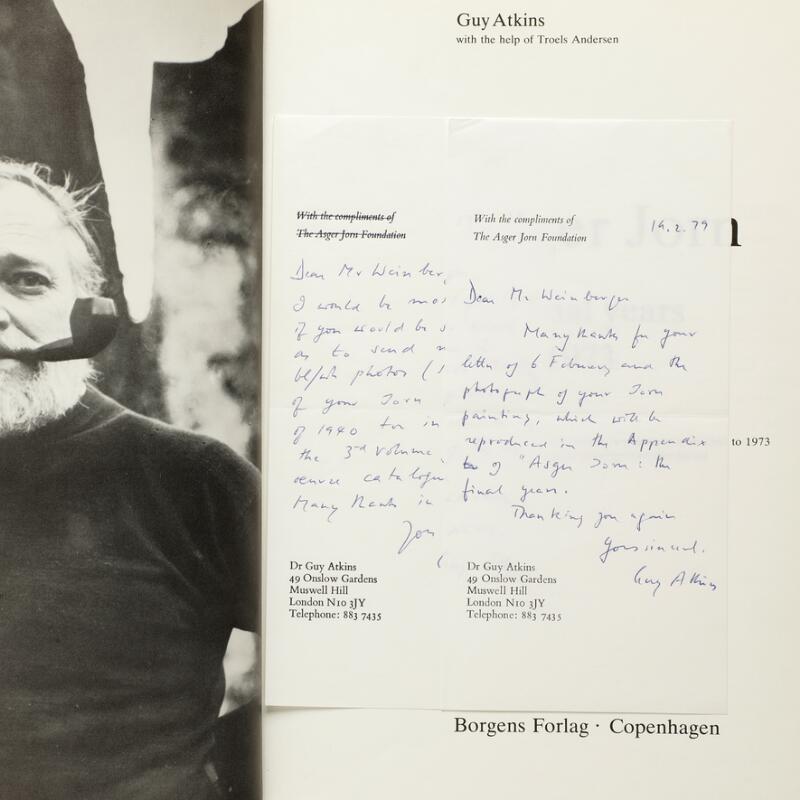 Guy Atkins
with the help of Troels Andersen
With the compliments of
The Asger Jorn Foundation
Dear Mr Weinber
I would be mos
of you would be s
as to send
bl/wh photos (
of your Jorn
of 1940 for in
the 3rd volume,
oeuvre catalogu
Many thanks in
You
Dr Guy Atkins
49 Onslow Gardens
Muswell Hill
London N10 3JY
Telephone: 883 7435
With the compliments of
The Asger Jorn Foundation
19.2.79
Dear Mr Weinberger
Many thanks for your
letter of 6 February and the
photograph of your Jorn
painting, which will be
reproduced in the Appendix
of "Asger Jorn: the
final years.
Thanking you again
Yours sincerely.
Guy Atkins
Dr Guy Atkins
49 Onslow Gardens
Muswell Hill
London N10 3JY
Telephone: 883 7435
er Jorn
al years
to 1973
Borgens Forlag · Copenhagen